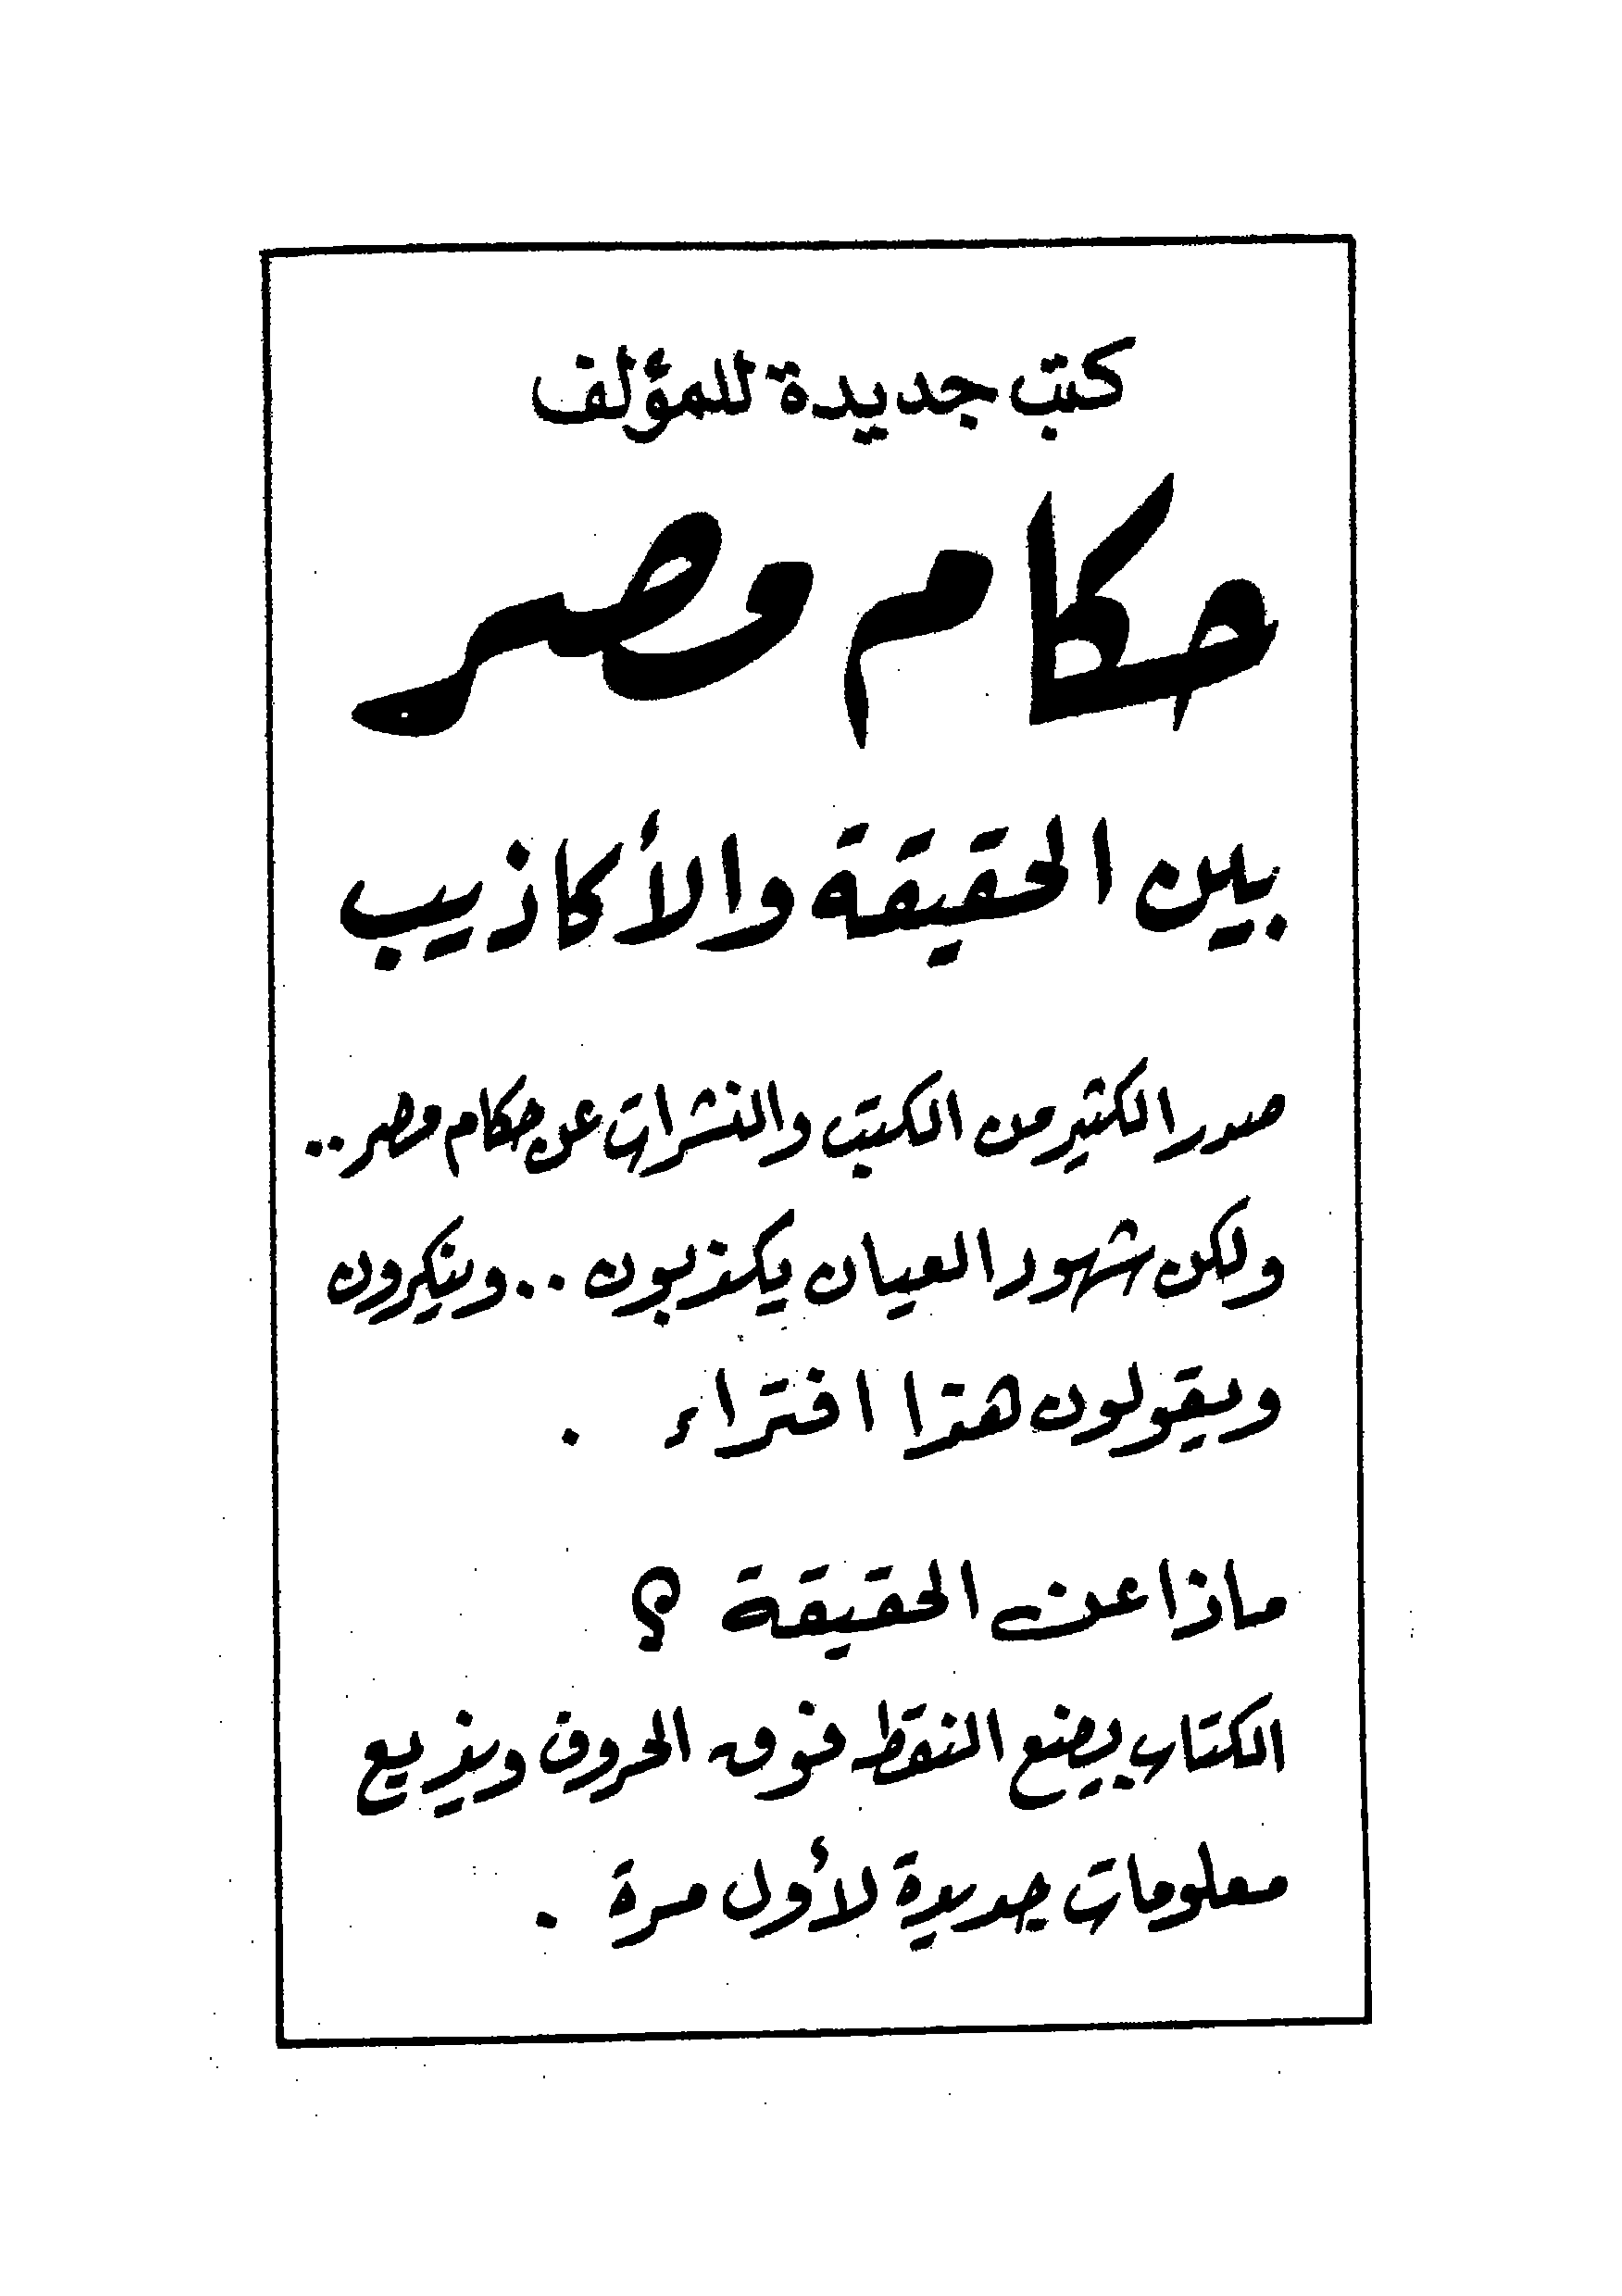 كتب جديدة للمؤلف
حكام مصر
بين الحقيقة والأكاذيب
صدر الكثير من الكتب والنشرات عن حكام مصر..
ولكن شهود العيان يكذبون .. وينكرون
ويقولون هذا افتراء .
ماذا عن الحقيقة ؟
الكتاب يضع النقط فوق الحروف ويذيع
معلومات جديدة لأول مرة .